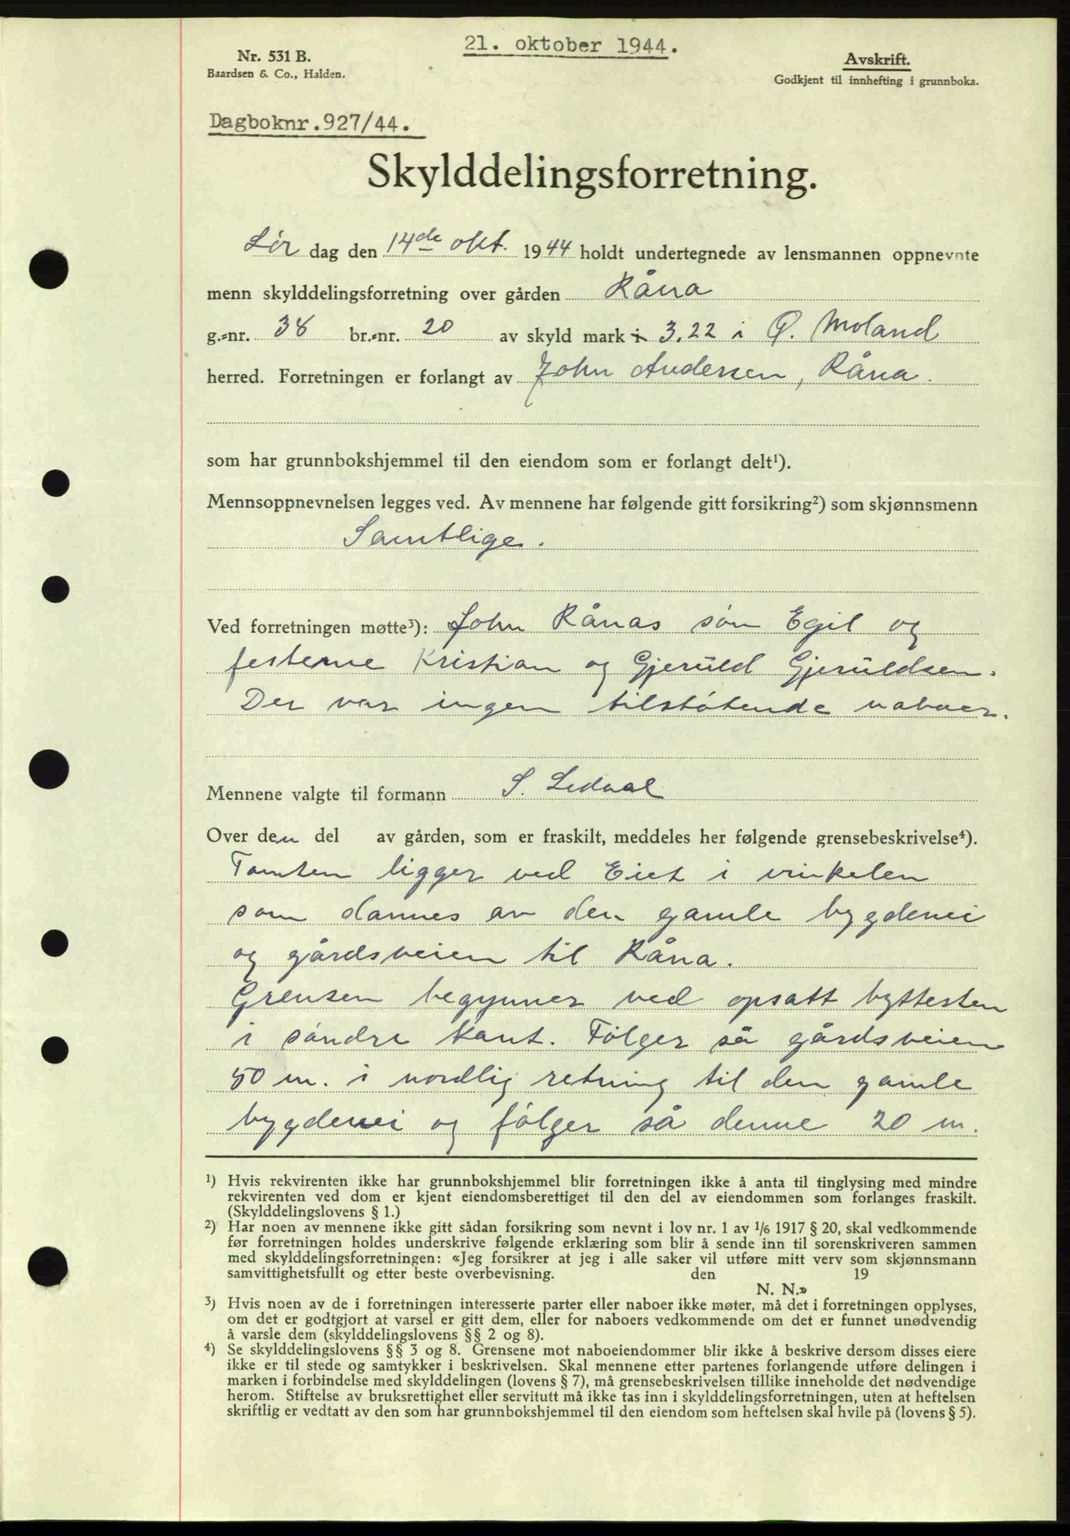 21. oktober 1944.
Nr. 531 B.
Baardsen & Co., Halden.
Avskrift.
Godkjent til innhefting i grunnboka.
Dagboknr. 927/44.
Skylddelingsforretning.
Lør dag den 14de okt. 1944 holdt undertegnede av lensmannen oppnevnte
menn skylddelingsforretning over gården Råna
g.-nr. 38 br.-nr. 20 av skyld mark 3.22 i Ø. Moland
herred. Forretningen er forlangt av John Andersen, Råna.
som har grunnbokshjemmel til den eiendom som er forlangt delt¹).
Mennsoppnevnelsen legges ved. Av mennene har følgende gitt forsikring²) som skjønnsmenn
Samtlige.
Ved forretningen møtte³): John Rånas søn Egil og
festerne Kristian og Gjeruld Gjeruldsen.
Der var ingen tilstøtende naboer.
Mennene valgte til formann S. Ledaal
Over den del av gården, som er fraskilt, meddeles her følgende grensebeskrivelse⁴).
Tomten ligger ved Eiet i vinkelen
som dannes av den gamle bygdevei
og gårdsveien til Råna.
Grensen begynner ved opsatt byttesten
i søndre kant. Følger så gårdsveien
50 m. i nordlig retning til den gamle
bygdevei og følger så denne 20 m.
¹) Hvis rekvirenten ikke har grunnbokshjemmel blir forretningen ikke å anta til tinglysing med mindre
rekvirenten ved dom er kjent eiendomsberettiget til den del av eiendommen som forlanges fraskilt.
(Skylddelingslovens § 1.)
²) Har noen av mennene ikke gitt sådan forsikring som nevnt i lov nr. 1 av 1/6 1917 § 20, skal vedkommende
før forretningen holdes underskrive følgende erklæring som blir å sende inn til sorenskriveren sammen
med skylddelingsforretningen: «Jeg forsikrer at jeg i alle saker vil utføre mitt verv som skjønnsmann
samvittighetsfullt og etter beste overbevisning. den 19
N. N.»
³) Hvis noen av de i forretningen interesserte parter eller naboer ikke møter, må det i forretningen opplyses,
om det er godtgjort at varsel er gitt dem, eller for naboers vedkommende om det er funnet unødvendig
å varsle dem (skylddelingslovens §§ 2 og 8).
⁴) Se skylddelingslovens §§ 3 og 8. Grensene mot naboeiendommer blir ikke å beskrive dersom disses eiere
ikke er til stede og samtykker i beskrivelsen. Skal mennene etter partenes forlangende utføre delingen i
marken i forbindelse med skylddelingen (lovens § 7), må grensebeskrivelsen tillike inneholde det nødvendige
herom. Stiftelse av bruksrettighet eller servitutt må ikke tas inn i skylddelingsforretningen, uten at heftelsen
skriftlig er vedtatt av den som har grunnbokshjemmel til den eiendom som heftelsen skal hvile på (lovens § 5).